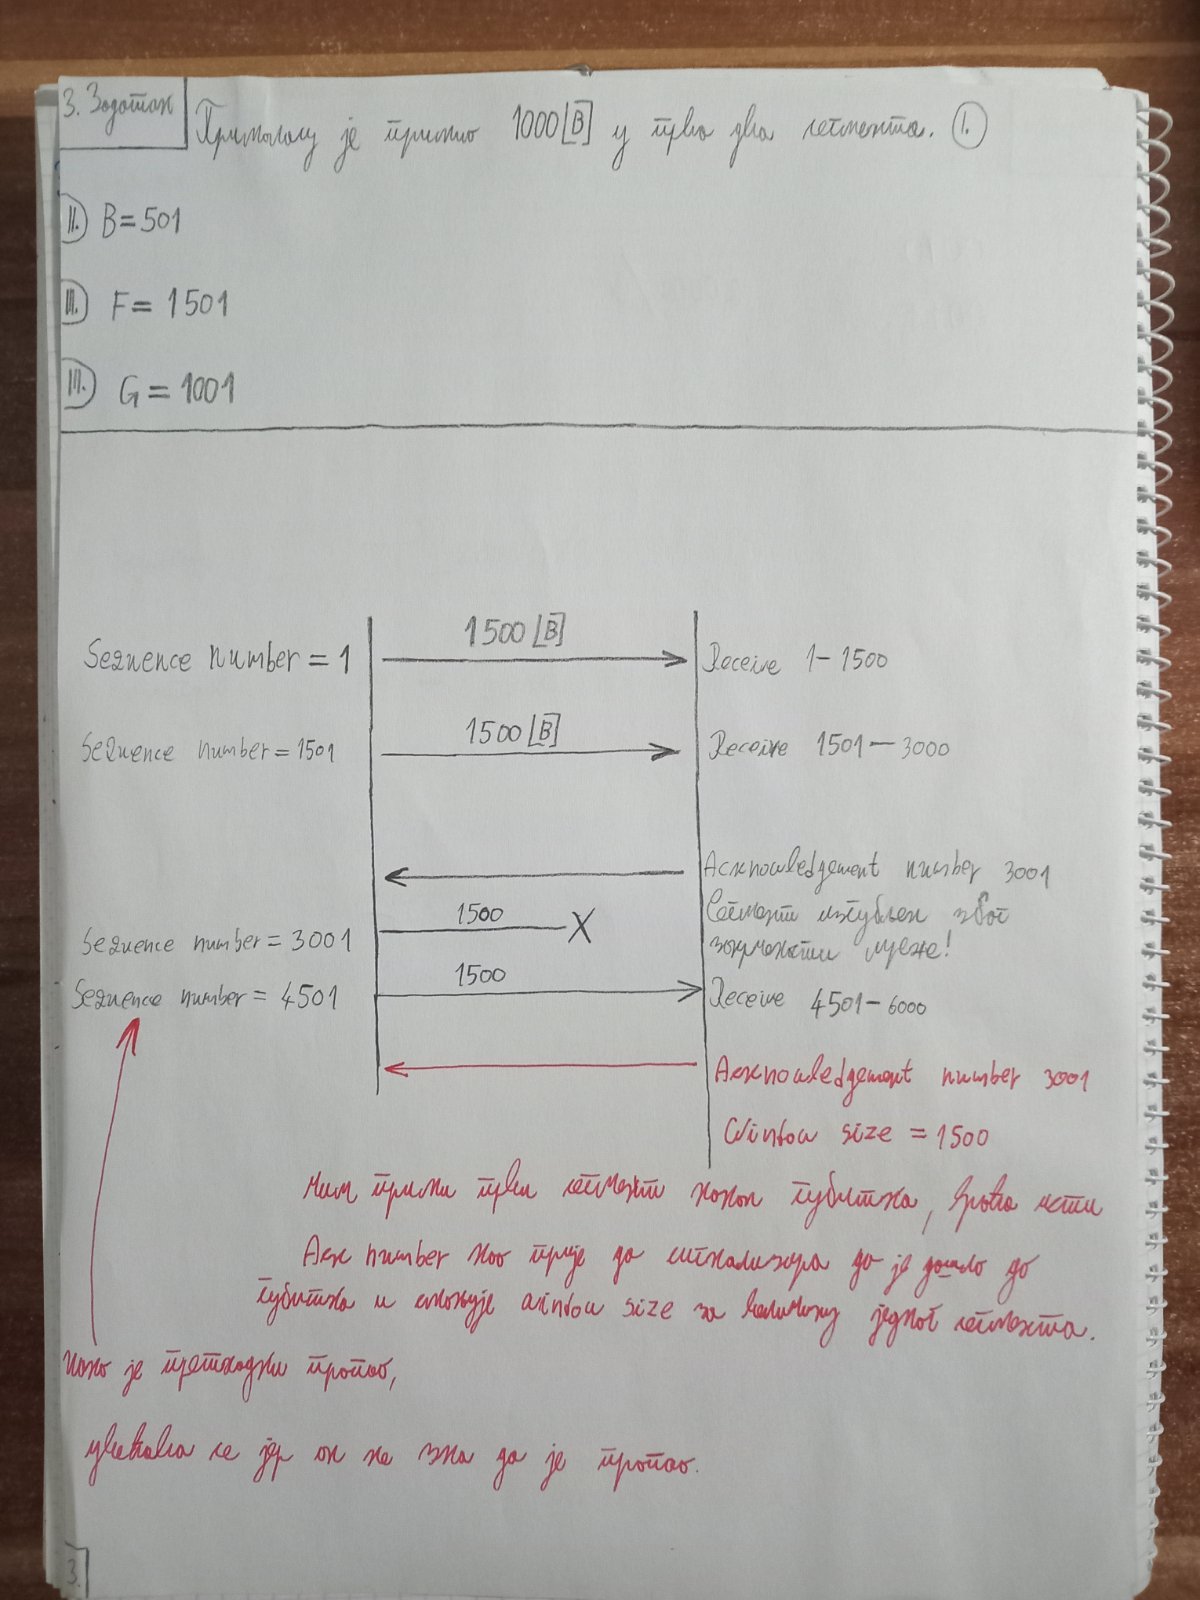 3. Задатак
Примаоцу је примио 1000[B] у прва два сегмента. I.
II. B=501
III. F= 1501
III. G= 1001
1500[B]
Sequence number = 1
Receive 1- 1500
1500[B]
Sequence number = 1501
Receive 1501 - 3000
Acknowledgement number 3001
1500 X
Сегмент изгубљен због
Sequence number = 3001
закрчености мреже!
1500
Sequence number = 4501
Receive 4501-6000
Acknowledgement number 3001
Window size = 1500
Чим прими први сегмент након губитка, враћа исти
Ack number као прије да сигнализира да је дошло до
губитка и смањује window size за величину једног сегмента.
Иако је претходни пропао,
увећава се јер он не зна да је пропао.
3.